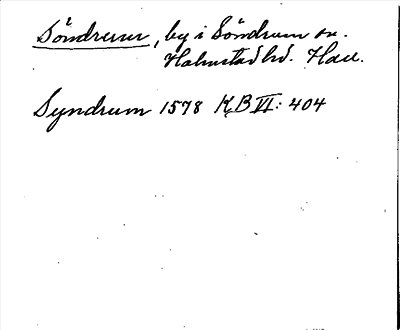 Söndrum, by i Söndrum sn.
Halmstad hd. Hall.
Syndrum 1578 KB VI: 404